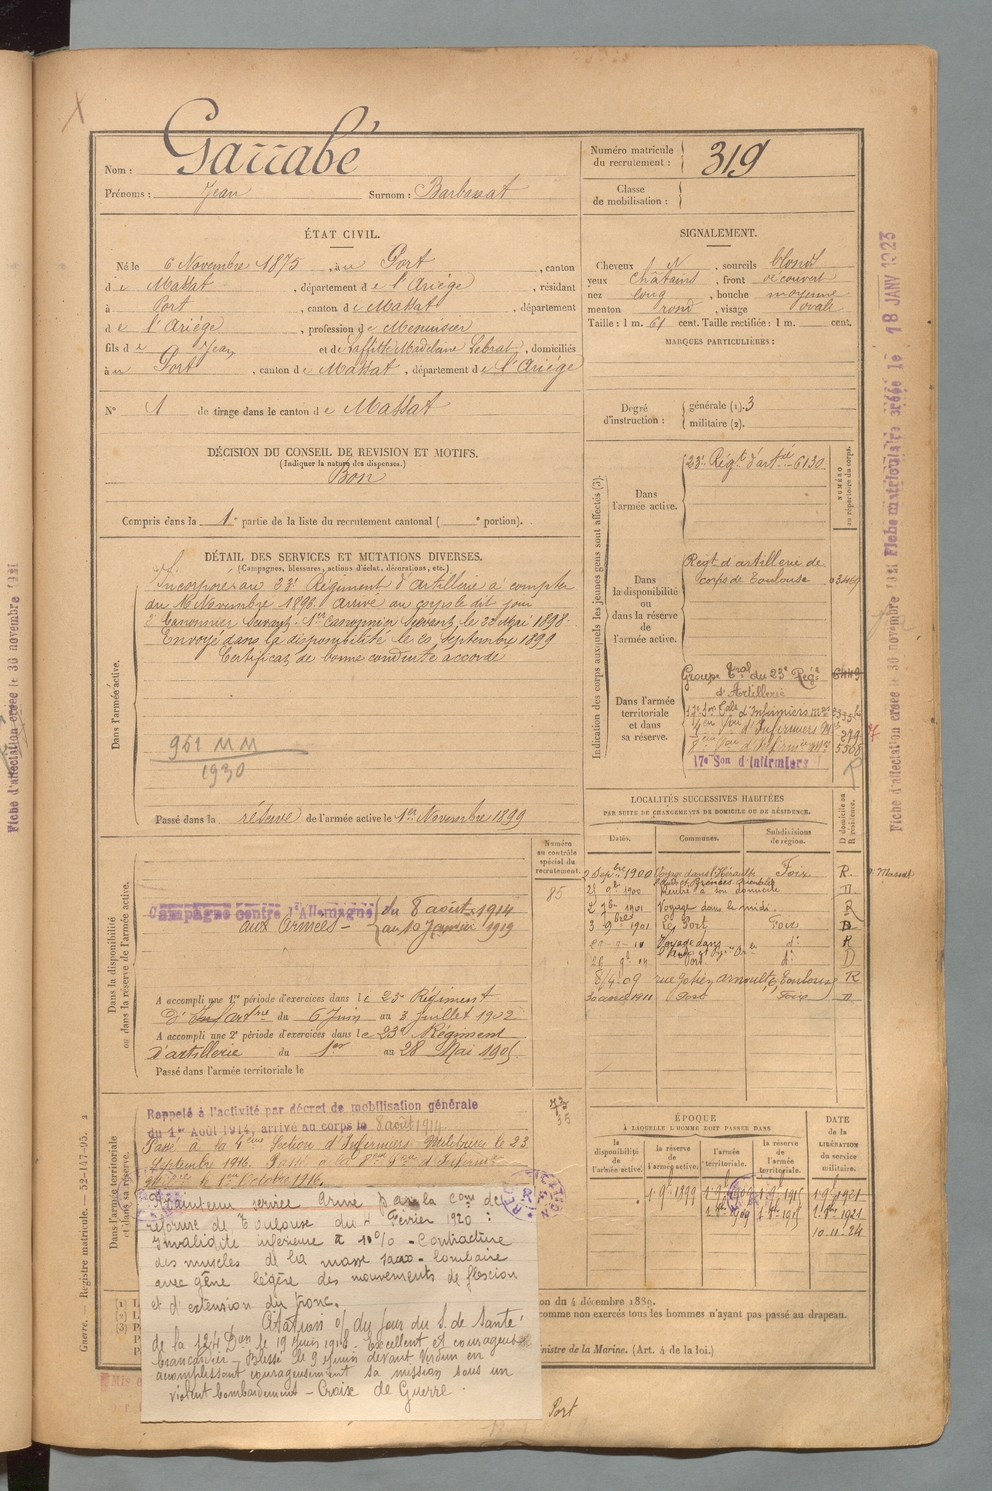 Nom : Garrabé
Prénoms : Jean Surnom : Barbarat
Numéro matricule du recrutement : 319
Classe de mobilisation :
ÉTAT CIVIL.
Né le 6 Novembre 1875, à Port, canton
de Massat, département de l'Ariége, résidant
à Port, canton de Massat, département
de l'Ariége, profession de Menuisier
fils de Jean et de Laffitte Madelane Lebrat, domiciliés
à Port, canton de Massat, département de l'Ariége
N° 1 de tirage dans le canton de Massat
SIGNALEMENT.
Cheveux N, sourcils blond
yeux Châtains, front découvert
nez long, bouche moyenne
menton rond, visage ovale
Taille : 1 m. 61 cent. Taille rectifiée : 1 m. cent.
MARQUES PARTICULIÈRES :
Degré d'instruction : générale (1). 3
militaire (2).
DÉCISION DU CONSEIL DE REVISION ET MOTIFS.
(Indiquer la nature des dispenses.)
Bon
Compris dans la 1e partie de la liste du recrutement cantonal ( e portion).
DÉTAIL DES SERVICES ET MUTATIONS DIVERSES.
(Campagnes, blessures, actions d'éclat, décorations, etc.)
Dans l'armée active.
Incorporé au 23e Régiment d'artillerie à compter
du 16 Novembre 1896. Arrivé au corps le dit jour
2e Canonnier Servant. 1er canonnier Servant le 25 Mai 1898.
Envoyé dans la disponibilité le 20 Septembre 1899
Certificat de bonne conduite accordé
961 MM
1930
Passé dans la réserve de l'armée active le 1er Novembre 1899
Indication des corps auxquels les jeunes gens sont affectés (3).
NUMÉRO au répertoire du corps.
Dans l'armée active.
23e Régt d'artie 6130
Dans la disponibilité ou dans la réserve de l'armée active.
Régt d'artillerie de
Corps de Toulouse 03469
Dans l'armée territoriale et dans sa réserve.
Groupe Tral du 23e Régt
d'Artillerie
17e Son d'infirmiers
LOCALITÉS SUCCESSIVES HABITÉES
PAR SUITE DE CHANGEMENTS DE DOMICILE OU DE RÉSIDENCE.
Dates. Communes. Subdivisions de région. D domicile ou R résidence.
2 Sepbre 1900 Voyage dans l'Hérault Foix R.
21 8t 1900 Rentré à son domicile D.
2 7bre 1901 Voyage dans le midi R
3 9bre 1901 Le Port Foix D
Voyage dans R
Port d° D
8/4 09 Toulouse R
1911 Port Foix D
Dans la disponibilité ou dans la réserve de l'armée active.
Numéro au contrôle spécial du recrutement.
85
Campagne contre l'Allemagne du 8 août 1914
aux Armées au 10 Janvier 1919
A accompli une 1re période d'exercices dans le 23e Régiment
d'artie du 6 Juin au 3 Juillet 1902
A accompli une 2e période d'exercices dans le 23e Régiment
d'artillerie du 1er au 28 Mai 1905
Passé dans l'armée territoriale le
Dans l'armée territoriale et dans sa réserve.
Rappelé à l'activité par décret de mobilisation générale
du 1er Août 1914, arrivé au corps le 8 août 1914
Passé à la 4ème Section d'Infirmiers Militaires le 23
Septembre 1916. Passé à la 8me Son d'Infirmiers
Militres le 1er Octobre 1916.
Maintenu service Armé par la Com de
réforme de Toulouse du 4 Février 1920 :
Invalidité inférieure à 10% - Contracture
des muscles de la masse sacro-lombaire
avec gêne légère des mouvements de flexion
et d'extension du tronc.
Citation O/ du jour du S. de Santé
de la 124 Don le 19 Juin 1916. Excellent et courageux
brancardier - Blessé le 9 Juin devant Verdun en
accomplissant courageusement sa mission sous un
violent bombardement - Croix de Guerre.
ÉPOQUE
À LAQUELLE L'HOMME DOIT PASSER DANS
la disponibilité de l'armée active. la réserve de l'armée active. l'armée territoriale. la réserve de l'armée territoriale.
DATE de la LIBÉRATION du service militaire.
10.11.24
on du 4 décembre 1889.
comme non exercés tous les hommes n'ayant pas passé au drapeau.
inistre de la Marine. (Art. 4 de la loi.)
Port
Guerre. — Registre matricule. — 52-147-95. 2
Fiche d'affectation créée le 30 novembre 1921
Fiche matriculaire créée le 18 JANV 1923
Fiche d'affectation créée le 30 novembre 1921